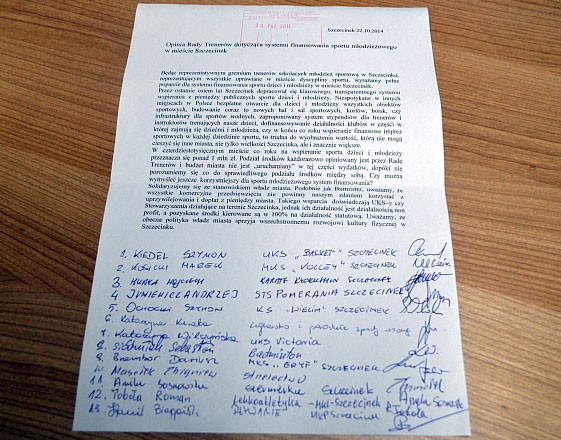 Szczecinek 22.10.2014
Opinia Rady Trenerów dotycząca systemu finansowania sportu młodzieżowego
w mieście Szczecinek
Będąc reprezentatywnym gremium trenerów szkolących młodzież sportową w Szczecinku,
reprezentującym wszystkie uprawiane w mieście dyscypliny sportu, wyrażamy pełne
poparcie dla systemu finansowania sportu dzieci i młodzieży w Szczecinku.
Przez ostatnie osiem lat Szczecinek dopracował się klarownego, transparentnego systemu
wspierania z pieniędzy publicznych sportu dzieci i młodzieży. Niespotykane w innych
miejscach w Polsce bezpłatne otwarcie dla dzieci i młodzieży wszystkich obiektów
sportowych, budowanie coraz to nowych hal i sal sportowych, kortów, boisk, czy
infrastruktury dla sportów wodnych, zaproponowany system stypendiów dla trenerów i
instruktorów trenujących nasze dzieci, dofinansowywanie działalności klubów w części w
której zajmują się dziećmi i młodzieżą, czy w końcu co roku wspieranie finansowo imprez
sportowych w każdej dziedzinie sportu, to trudna do wyobrażenia wartość, którą nie mogą
cieszyć się inne miasta, nie tylko wielkości Szczecinka, ale i znacznie większe.
W czterdziestotysięcznym mieście co roku na wspieranie sportu dzieci i młodzieży
przeznacza się ponad 1 mln zł. Podział środków każdorazowo opiniowany jest przez Radę
Trenerów i budżet miasta nie jest „uruchamiany” w tej części wydatków, dopóki nie
porozumiemy się co do sprawiedliwego podziału środków między sobą. Czy można
wymyśleć jeszcze korzystniejszy dla sportu młodzieżowego system finansowania?
Solidaryzujemy się ze stanowiskiem władz miasta. Podobnie jak Burmistrz, uważamy, że
wszystkie komercyjne przedsięwzięcia nie powinny naszym zdaniem korzystać z
uprzywilejowania i dopłat z pieniędzy miasta. Takiego wsparcia doświadczają UKS-y czy
Stowarzyszenia działające na terenie Szczecinka, jednak ich działalność jest działalnością non
profit, a pozyskane środki kierowane są w 100% na działalność statutową. Uważamy, że
obecna polityka władz miasta sprzyja wszechstronnemu rozwojowi kultury fizycznej w
Szczecinku.
1. KIEDEL SZYMON UKS „BASKET” SZCZECINEK
2. MAREK MKS „VOLLEY” SZCZECINEK
3. HURKA WOJCIECH KARATE KYOKUSHIN SZCZECINEK
4 ANDRZEJ STS POMERANIA SZCZECINEK
5. SZYMON KS „WIELIM” SZCZECINEK
6. Katarzyna
7. Katarzyna UKS Victoria
8. Sebastian Badminton
9. Brembor Dariusz MKS „GRYF” SZCZECINEK
10. Zbigniew
11. Aneta Sosnowska Szczecinek
12. Tobola Roman Lekkoatletyka - MKL - Szczecinek
13 Kamil PŁYWANIE